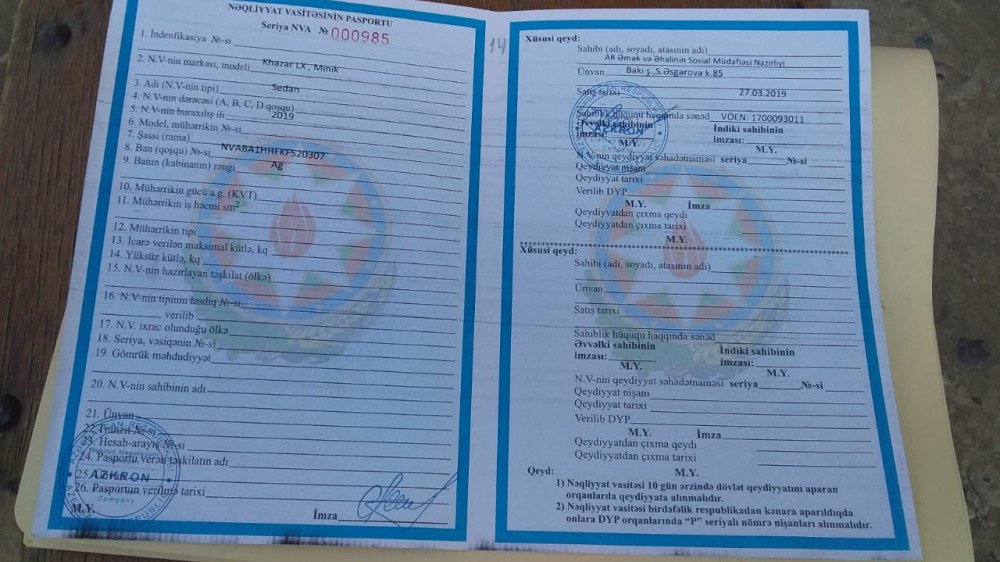 NƏQLİYYAT VASİTƏSİNİN PASPORTU
Seriya NVA № 000985
1. İndenfikasiya №-si
2. N.V-nin markası, modeli Khazar LX , Minik
3. Adı (N.V-nin tipi) Sedan
4. N.V-nin dərəcəsi (A, B, C, D qoşqu)
5. N.V-nin buraxılış ili 2019
6. Model, mühərrikin №-si
7. Şassi (rama)
8. Ban (qoşqu) №-si NVABA1HHFKF520307
9. Banın (kabinanın) rəngi Ağ
10. Mühərrikin gücü a.g. (KVT)
11. Mühərrikin iş həcmi sm²
12. Mühərrikin tipi
13. İcarə verilən maksimal kütlə, kq
14. Yüksüz kütlə, kq
15. N.V-nin hazırlayan təşkilat (ölkə)
16. N.V-nin tipinin təsdiq №-si
verilib
17. N.V. ixrac olunduğu ölkə
18. Seriya, vəsiqənin №-si
19. Gömrük məhdudiyyət
20. N.V-nin sahibinin adı
21. Ünvan
22. №-si
23. Hesab-arayış №-si
24. Pasportu verən təşkilatın adı
25.
26. Pasportun verilmə tarixi
AZKRON
Company
M.Y.
İmza
14
Xüsusi qeyd:
Sahibi (adı, soyadı, atasının adı)
AR Əmək və Əhalinin Sosial Müdafiəsi Nazirliyi
Ünvan Bakı ş.,S.Əsgərova k.85
Satış tarixi 27.03.2019
Sahiblik hüququ haqqında sənəd VÖEN: 1700093011
Əvvəlki sahibinin
imzası:
İndiki sahibinin
imzası:
AZKRON
M.Y.
M.Y.
N.V-nin qeydiyyat şəhadətnaməsi seriya №-si
Qeydiyyat nişanı
Qeydiyyat tarixi
Verilib DYP
M.Y. İmza
Qeydiyyatdan çıxma qeydi
Qeydiyyatdan çıxma tarixi
M.Y.
Xüsusi qeyd:
Sahibi (adı, soyadı, atasının adı)
Ünvan
Satış tarixi
Sahiblik hüququ haqqında sənəd
Əvvəlki sahibinin
imzası:
İndiki sahibinin
imzası:
M.Y.
M.Y.
N.V-nin qeydiyyat şəhadətnaməsi seriya №-si
Qeydiyyat nişanı
Qeydiyyat tarixi
Verilib DYP
M.Y. İmza
Qeydiyyatdan çıxma qeydi
Qeydiyyatdan çıxma tarixi
Qeyd: M.Y.
1) Nəqliyyat vasitəsi 10 gün ərzində dövlət qeydiyyatını aparan
orqanlarda qeydiyyata alınmalıdır.
2) Nəqliyyat vasitəsi birdəfəlik respublikadan kənara aparıldıqda
onlara DYP orqanlarında "P" seriyalı nömrə nişanları alınmalıdır.